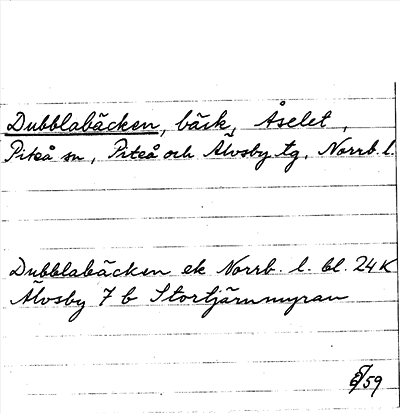 Dubblabäcken, bäck, Åselet,
Piteå sn, Piteå och Älvsby tg, Norrb. l.
Dubblabäcken ek Norrb. l. bl. 24K
Älvsby 7 b Stortjärnmyran
/59